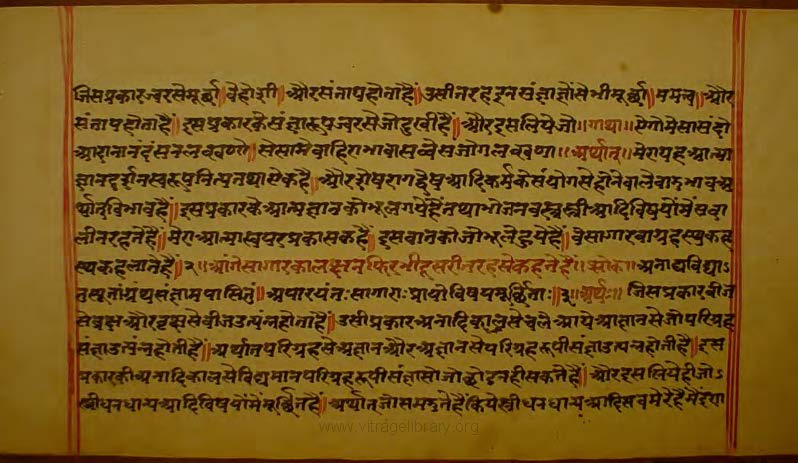 जिसप्रकारज्वरसेमूर्छा॥वेहोशी॥औरसंतापहोताहै॥उसीतरहइनसंज्ञाओंसेभीमूर्छा॥ममत्व॥और
संतापहोताहै॥इसप्रकारकेसंज्ञारूपज्वरसेजोदुखीहै॥औरइसलियेजो॥गाथा॥एगोमेसासदो
आदानानदंसनलक्खणो॥सेसामेवाहिराभावासव्वेसंजोगलक्खणा॥अर्थात्॥मेरायहआत्मा
ज्ञानदर्शनस्वरूपनित्यतथाएकहै॥औरशेषरागद्वेषआदिकर्मकेसंयोगसेहोनेवालेवाह्यभावअ
र्थात्विभावहै॥इसप्रकारकेआत्मज्ञानकोभूलगयेहैंतथाभोजनवस्त्रस्त्रीआदिविषयोंमेंसदा
लीनरहतेहैं॥मेराआत्मास्वपरप्रकासकहै॥इसवातकोजोभूलेहुयेहैं॥वेसागारवागृहस्थकह
स्थकहलातेहैं॥२॥आगेसागारकालक्षनफिरभीदूसरीतरहसेकहतेहैं॥स्लोक॥अनाद्यविद्या
नुस्यूतांग्रंथसंज्ञामपासितुं॥अपारयंतःसागाराःप्रायोविषयमूर्छिताः॥३॥अर्थः॥जिसप्रकारवीज
सेवृक्षऔरवृक्षसेवीजउत्पन्नहोताहै॥उसीप्रकारअनादिकालसेचलेआयेअज्ञानसेजोपरिग्रह
संज्ञाउत्पन्नहोतीहै॥अर्थातपरिग्रहसेअज्ञानऔरअज्ञानसेपरिग्रहरूपीसंज्ञाउत्पन्नहोतीहै॥इस
प्रकारकीअनादिकालसेविद्यमानपरिग्रहरूपीसंज्ञाकोजोछोडनहीसकतेहैं॥औरइसलियेहीजो
स्त्रीधनधान्यआदिविषयोंमेंमूर्छितहैं॥अर्थात्जोसमझतेहैकियेस्त्रीधनधान्यआदिसवमेरेहैंमैंइनका
www.vitragelibrary.org